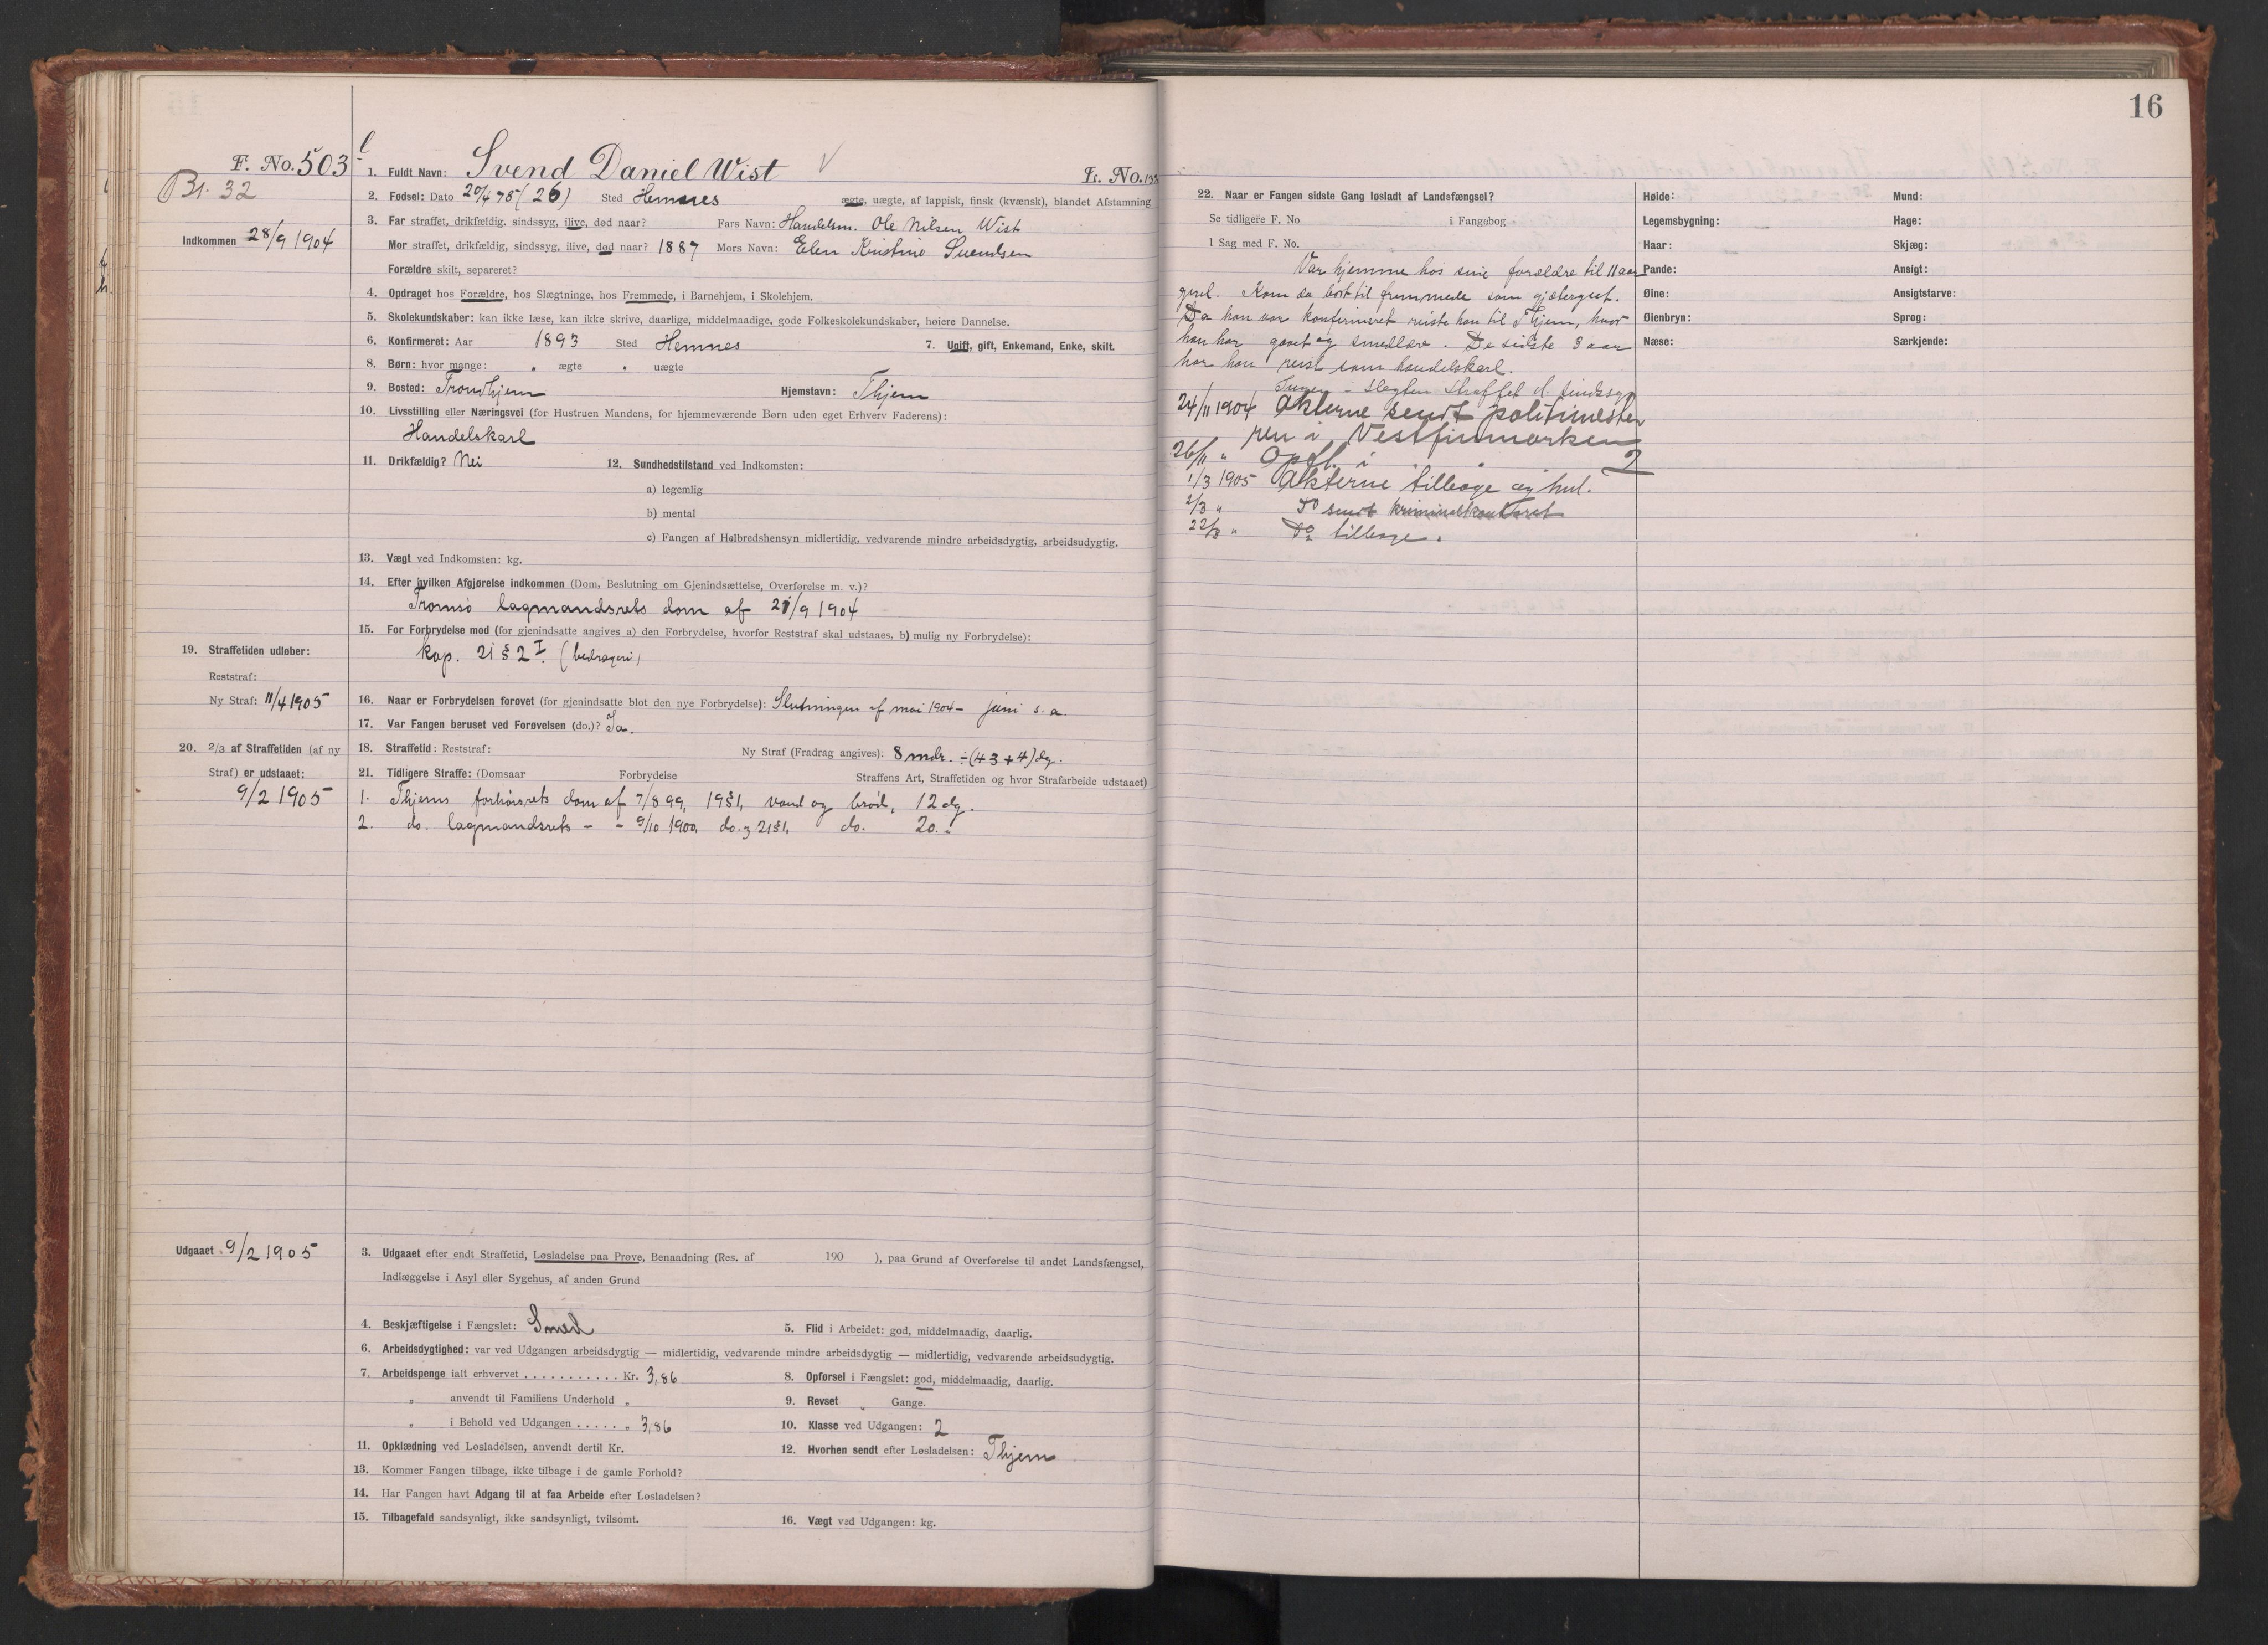 16
F. No. 503
Br. 32
Indkommen 28/9 1904
1. Fuldt Navn: Svend Daniel Wist
Fr. No.
2. Fødsel: Dato 20/4 78 (26) Sted Hemnes ægte, uægte, af lappisk, finsk (kvænsk), blandet Afstamning
3. Far straffet, drikfældig, sindssyg, ilive, død naar? Fars Navn: Handelsm. Ole Nilsen Wist
Mor straffet, drikfældig, sindssyg, ilive, død naar? 1887 Mors Navn: Elen Kristine Svendsen
Forældre skilt, separeret?
4. Opdraget hos Forældre, hos Slægtninge, hos Fremmede, i Barnehjem, i Skolehjem.
5. Skolekundskaber: kan ikke læse, kan ikke skrive, daarlige, middelmaadige, gode Folkeskolekundskaber, høiere Dannelse.
6. Konfirmeret: Aar 1893 Sted Hemnes 7. Ugift, gift, Enkemand, Enke, skilt.
8. Børn: hvor mange: " ægte " uægte
9. Bosted: Trondhjem Hjemstavn: Thjem
10. Livsstilling eller Næringsvei (for Hustruen Mandens, for hjemmeværende Børn uden eget Erhverv Faderens):
Handelskarl
11. Drikfældig? Nei 12. Sundhedstilstand ved Indkomsten:
a) legemlig
b) mental
c) Fangen af Helbredshensyn midlertidig, vedvarende mindre arbeidsdygtig, arbeidsudygtig.
13. Vægt ved Indkomsten: kg.
14. Efter hvilken Afgjørelse indkommen (Dom, Beslutning om Gjenindsættelse, Overførelse m. v.)?
Tromsø lagmandsrets dom af 21/9 1904
15. For Forbrydelse mod (for gjenindsatte angives a) den Forbrydelse, hvorfor Reststraf skal udstaaes, b) mulig ny Forbrydelse):
kap. 21 § 2 I. (bedrageri)
19. Straffetiden udløber:
Reststraf:
Ny Straf: 11/4 1905
16. Naar er Forbrydelsen forøvet (for gjenindsatte blot den nye Forbrydelse): Slutningen af mai 1904 - juni s. a.
17. Var Fangen beruset ved Forøvelsen (do.)? Ja.
20. 2/3 af Straffetiden (af ny
Straf) er udstaaet:
9/2 1905
18. Straffetid: Reststraf: Ny Straf (Fradrag angives). 8 mdr. ÷ (43 + 4) dg.
21. Tidligere Straffe: (Domsaar Forbrydelse Straffens Art, Straffetiden og hvor Strafarbeide udstaaet)
1. Thjems forhørsrets dom af 7/8 99, 19 § 1, vand og brød, 12 dg.
2. do. lagmandsrets - - 9/10 1900, do. 21 § 1, do. 20. "
Udgaaet 9/2 1905
3. Udgaaet efter endt Straffetid, Løsladelse paa Prøve, Benaadning (Res. af 190 ), paa Grund af Overførelse til andet Landsfængsel,
Indlæggelse i Asyl eller Sygehus, af anden Grund
4. Beskjæftigelse i Fængslet: Smed 5. Flid i Arbeidet: god, middelmaadig, daarlig.
6. Arbeidsdygtighed: var ved Udgangen arbeidsdygtig — midlertidig, vedvarende mindre arbeidsdygtig — midlertidig, vedvarende arbeidsudygtig.
7. Arbeidspenge ialt erhvervet ........... Kr. 3,86 8. Opførsel i Fængslet: god, middelmaadig, daarlig.
" anvendt til Familiens Underhold " 9. Revset " Gange.
" i Behold ved Udgangen ..... " 3,86 10. Klasse ved Udgangen: 2
11. Opklædning ved Løsladelsen, anvendt dertil Kr. 12. Hvorhen sendt efter Løsladelsen: Thjem
13. Kommer Fangen tilbage, ikke tilbage i de gamle Forhold?
14. Har Fangen havt Adgang til at faa Arbeide efter Løsladelsen?
15. Tilbagefald sandsynligt, ikke sandsynligt, tvilsomt. 16. Vægt ved Udgangen: kg.
22. Naar er Fangen sidste Gang løsladt af Landsfængsel?
Se tidligere F. No i Fangebog
I Sag med F. No.
Var hjemme hos sine forældre til 11 aar
gml. Kom da bort til fremmede som gjætergut.
Da han var konfirmeret reiste han til Thjem, hvor
han har gaaet og smedlære. De sidste 3 aar
har han reist som handelskarl.
Ingen i slegten straffet el. sindssyg
24/11 1904 Akterne sendt politimester
ren i Vestfinmarken
26/11 " Opfl. i 2
1/3 1905 Akterne tilbage og hul.
2/3 " Do sendt kriminalkontoret
22/3 " Do tilbage.
Høide: Mund:
Legemsbygning: Hage:
Haar: Skjæg:
Pande: Ansigt:
Øine: Ansigtsfarve:
Øienbryn: Sprog:
Næse: Særkjende: